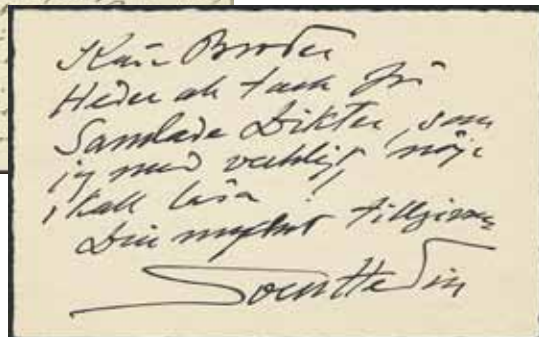 Käre Broder
Heder och tack för
Samlade Dikter, som
jag med verkligt nöje
skall läsa!
Din mycket tillgivne
Sven Hedin